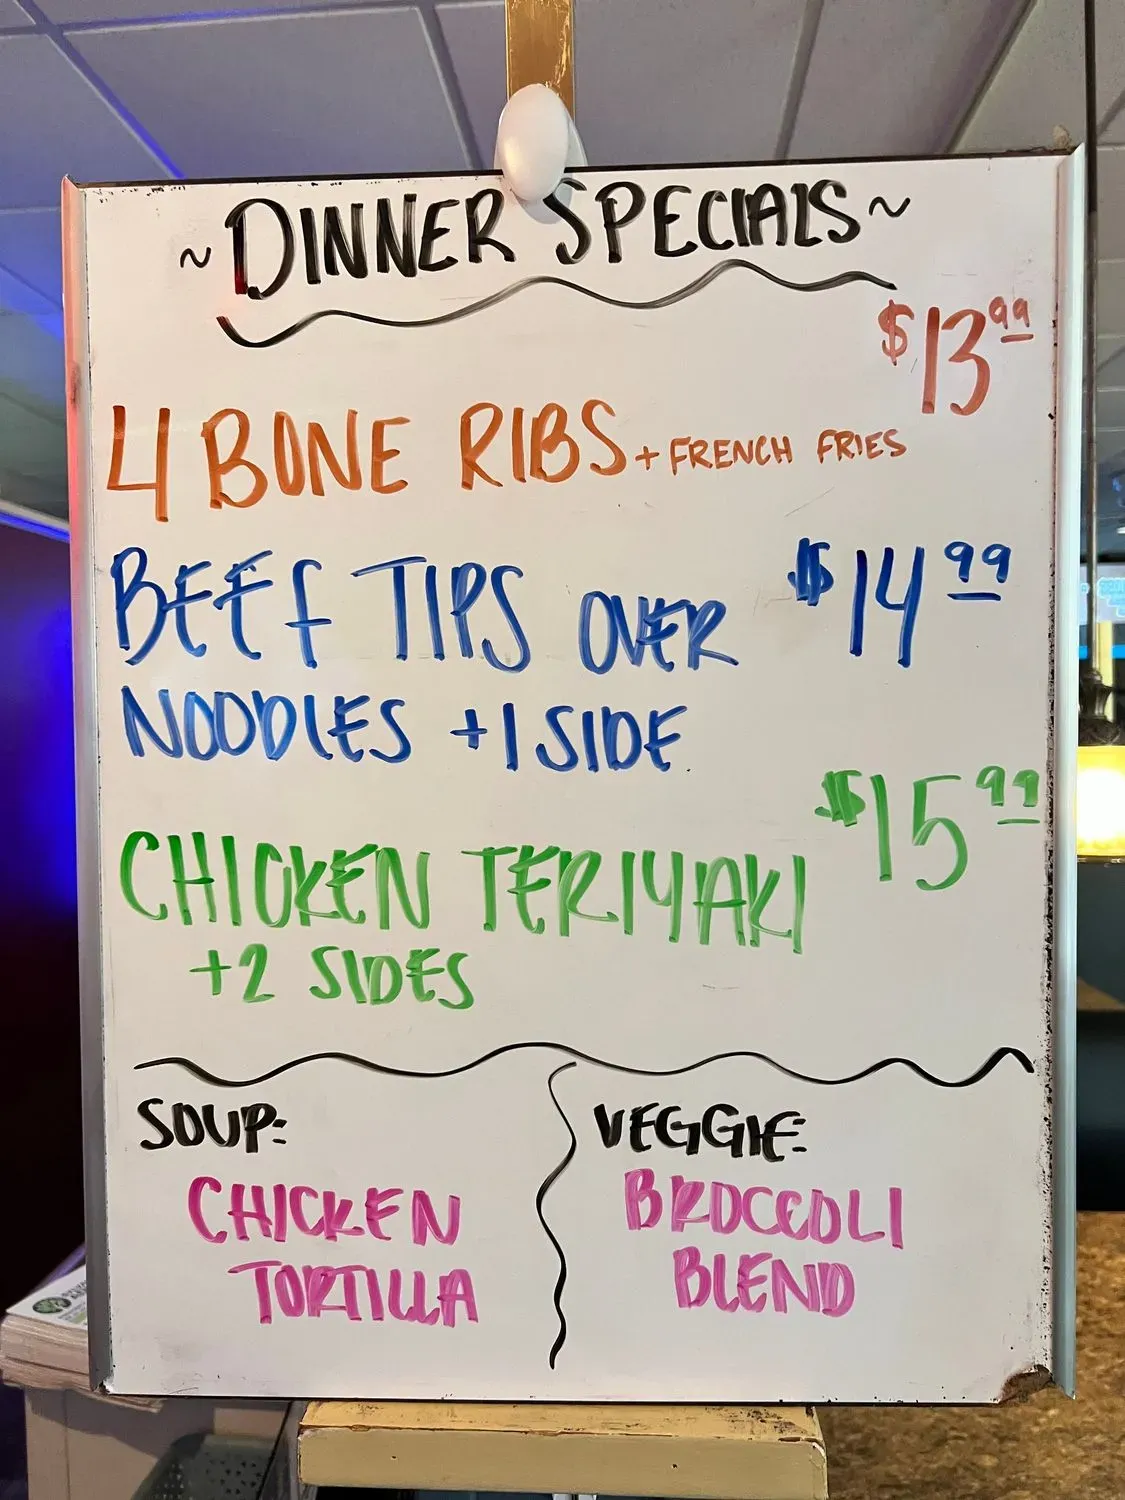 ~ DINNER SPECIALS ~
$13.99
4 BONE RIBS + FRENCH FRIES
BEEF TIPS OVER $14.99
NOODLES +1 SIDE
$15.99
CHICKEN TERIYAKI
+2 SIDES
SOUP:
CHICKEN
TORTILLA
VEGGIE:
BROCCOLI
BLEND